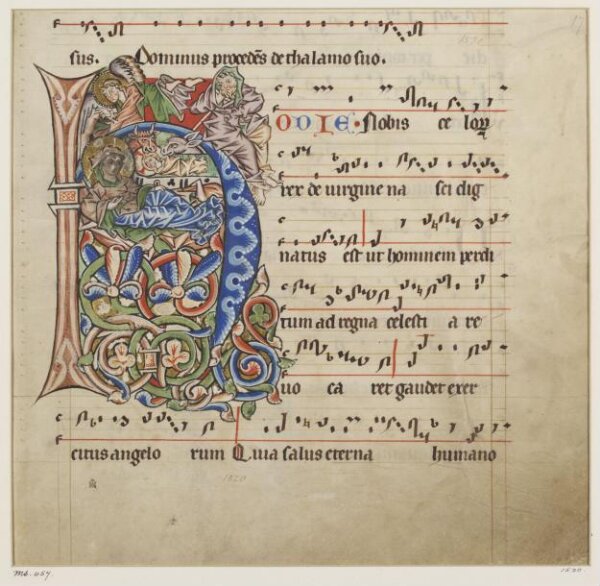 sus. Dominus procedēs de thalamo suo.
HODIE. Nobis ce loꝝ
rex de uirgine na sci dig
natus est ut hominem perdi
tum ad regna celesti a re
uo ca ret gaudet exer
citus angelo rum Quia salus eterna humano